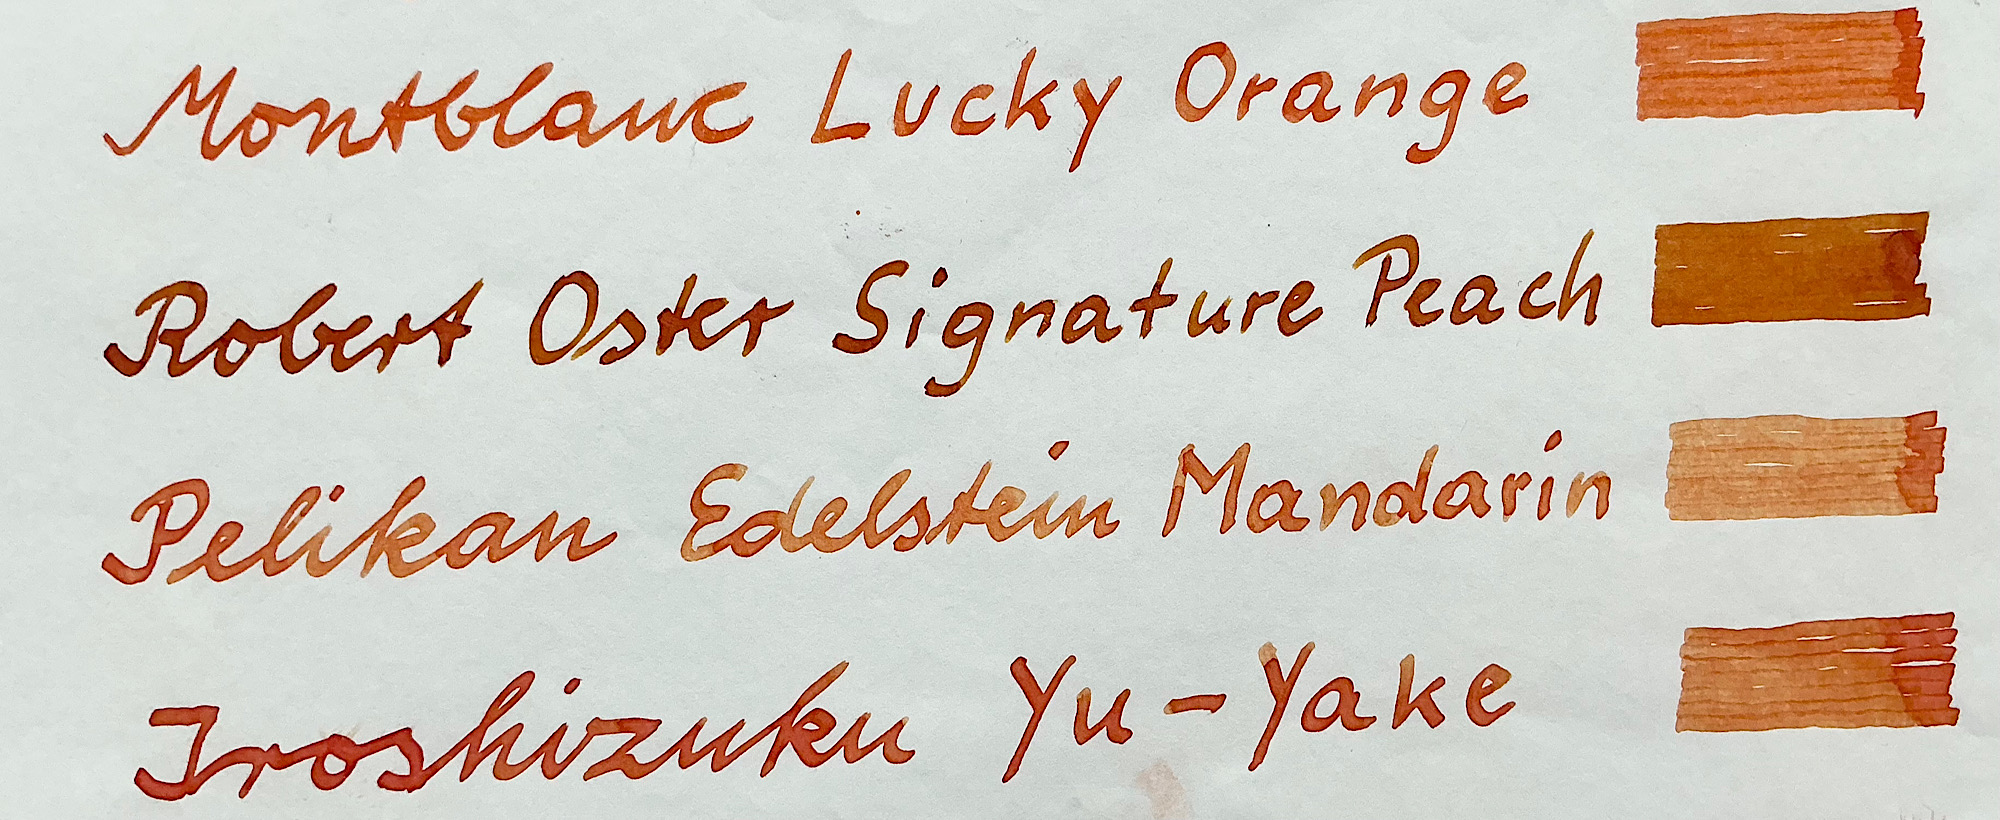 Montblanc Lucky Orange
Robert Oster Signature Peach
Pelikan Edelstein Mandarin
Iroshizuku Yu-Yake